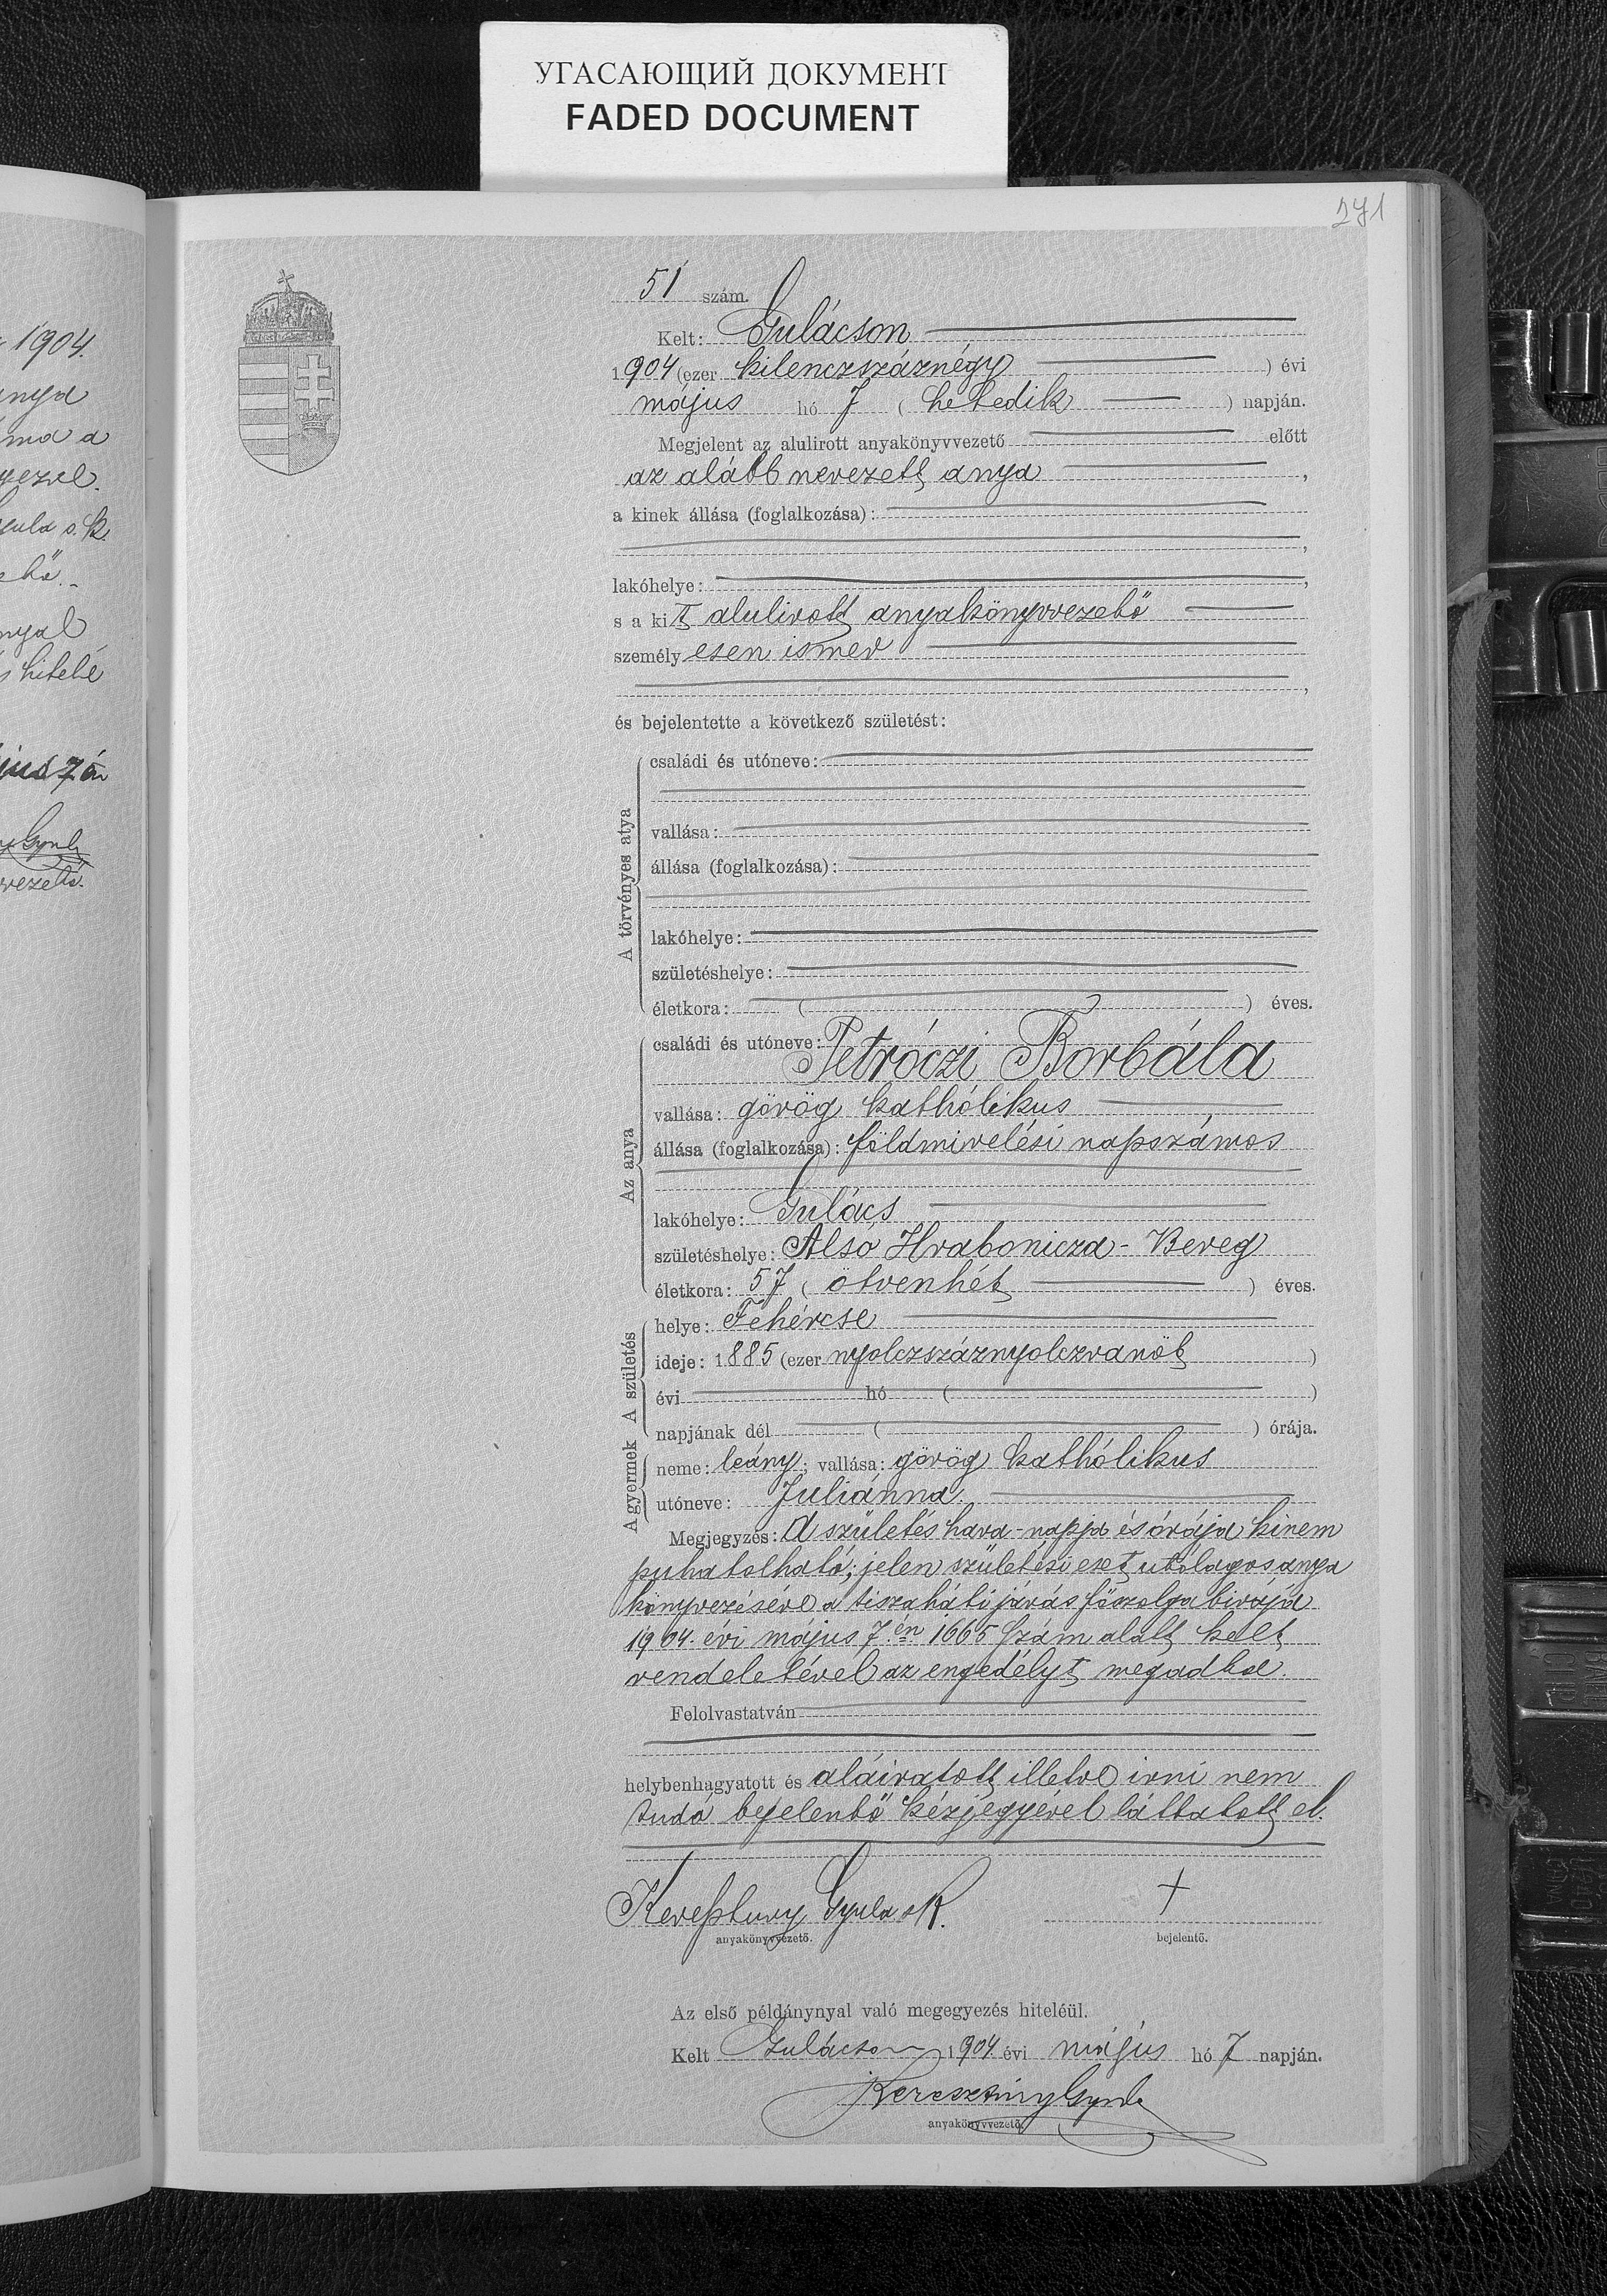 УГАСАЮЩИЙ ДОКУМЕНТ
FADED DOCUMENT
271
51 szám.
Kelt: Gulácson
1904 (ezer kilenczszáznégy) évi
május hó 7 (hetedik) napján.
Megjelent az alulirott anyakönyvvezető előtt
az alább nevezett anya,
a kinek állása (foglalkozása):
lakóhelye:
s a kit alulirott anyakönyvvezető
személyesen ismer
és bejelentette a következő születést:
A törvényes atya
családi és utóneve:
vallása:
állása (foglalkozása):
lakóhelye:
születéshelye:
életkora: ( ) éves.
Az anya
családi és utóneve: Petróczi Borbála
vallása: görög kathólikus
állása (foglalkozása): földmivelési napszámos
lakóhelye: Gulács
születéshelye: Alsó Hrabonicza - Bereg
életkora: 57 (ötvenhét) éves.
A születés
helye: Fehércse
ideje: 1885 (ezer nyolczszáznyolczvanöt)
évi hó ( )
napjának dél ( ) órája.
A gyermek
neme: leány; vallása: görög kathólikus
utóneve: Juliánna.
Megjegyzés: A születés hava - napja és órája kinem
puhatolható; jelen születési eset utólagos anya
könyvezésére a tiszaháti járás főszolgabirája
1904. évi május 7.én 1665 szám alatt kelt
rendeletével az engedélyt megadta.
Felolvastatván
helybenhagyatott és aláiratott illetve irni nem
tudó bejelentő kézjegyével láttatott el.
Keresztury Gyula sk. +
anyakönyvvezető. bejelentő.
Az első példánynyal való megegyezés hiteléül.
Kelt Gulácson 1904. évi május hó 7 napján.
Keresztúry Gyula
anyakönyvvezető.
1904.
anya
ma a
gyezve.
Gyula s. k.
ető.
nyal
s hitelé
jus 7 én
Gyula
vezető.